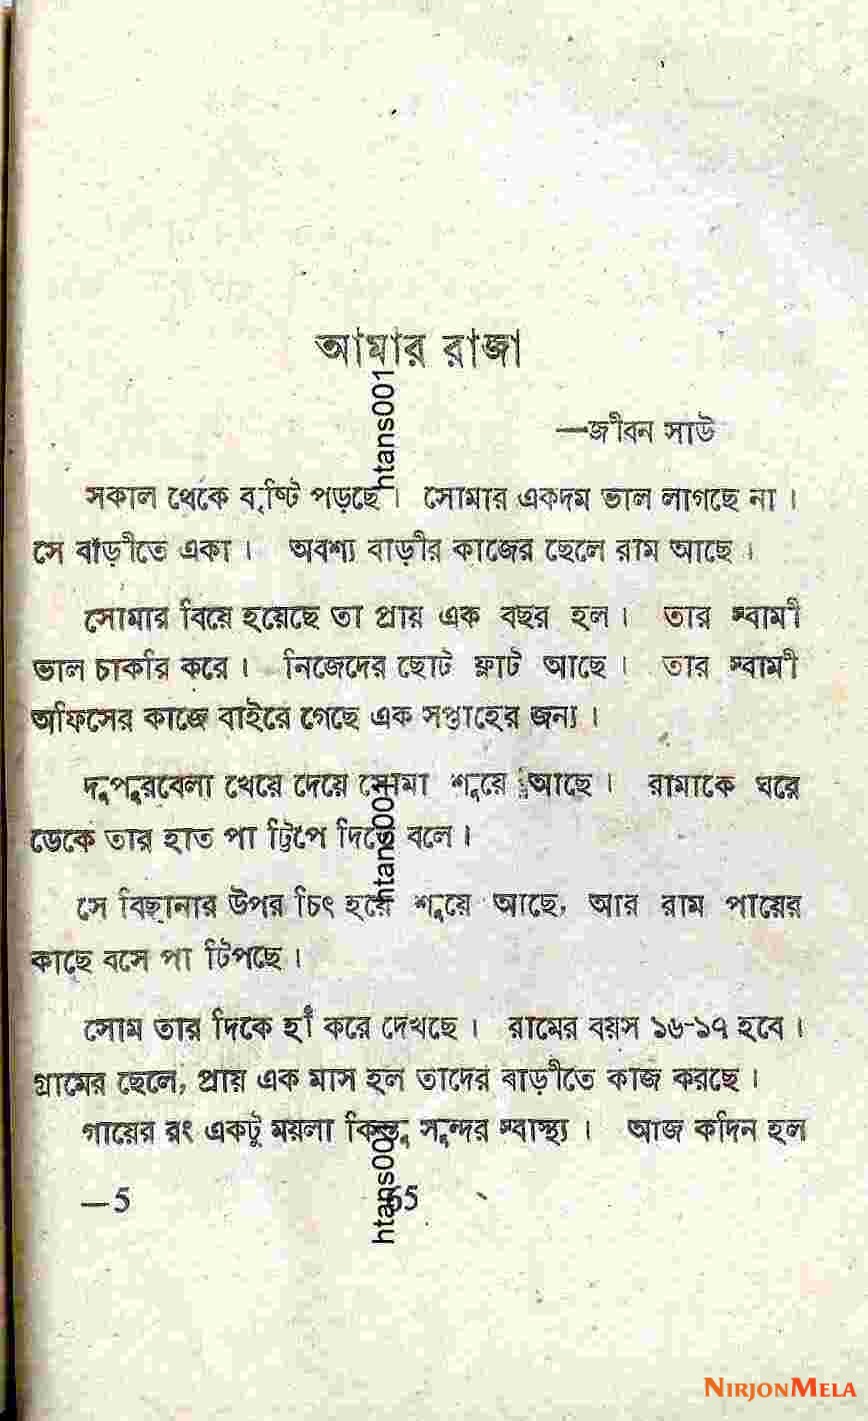 আমার রাজা
—জীবন সাউ
সকাল থেকে বৃষ্টি পড়ছে। সোমার একদম ভাল লাগছে না।
সে বাড়ীতে একা। অবশ্য বাড়ীর কাজের ছেলে রাম আছে।
সোমার বিয়ে হয়েছে তা প্রায় এক বছর হল। তার স্বামী
ভাল চাকরি করে। নিজেদের ছোট ফ্লাট আছে। তার স্বামী
অফিসের কাজে বাইরে গেছে এক সপ্তাহের জন্য।
দুপুরবেলা খেয়ে দেয়ে সোমা শুয়ে আছে। রামাকে ঘরে
ডেকে তার হাত পা টিপে দিতে বলে।
সে বিছানার উপর চিৎ হয়ে শুয়ে আছে, আর রাম পায়ের
কাছে বসে পা টিপছে।
সোম তার দিকে হাঁ করে দেখছে। রামের বয়স ১৬-১৭ হবে।
গ্রামের ছেলে, প্রায় এক মাস হল তাদের বাড়ীতে কাজ করছে।
গায়ের রং একটু ময়লা কিন্তু সুন্দর স্বাস্থ্য। আজ কদিন হল
—5 65
htans001
htans001
htans001
NIRJONMELA